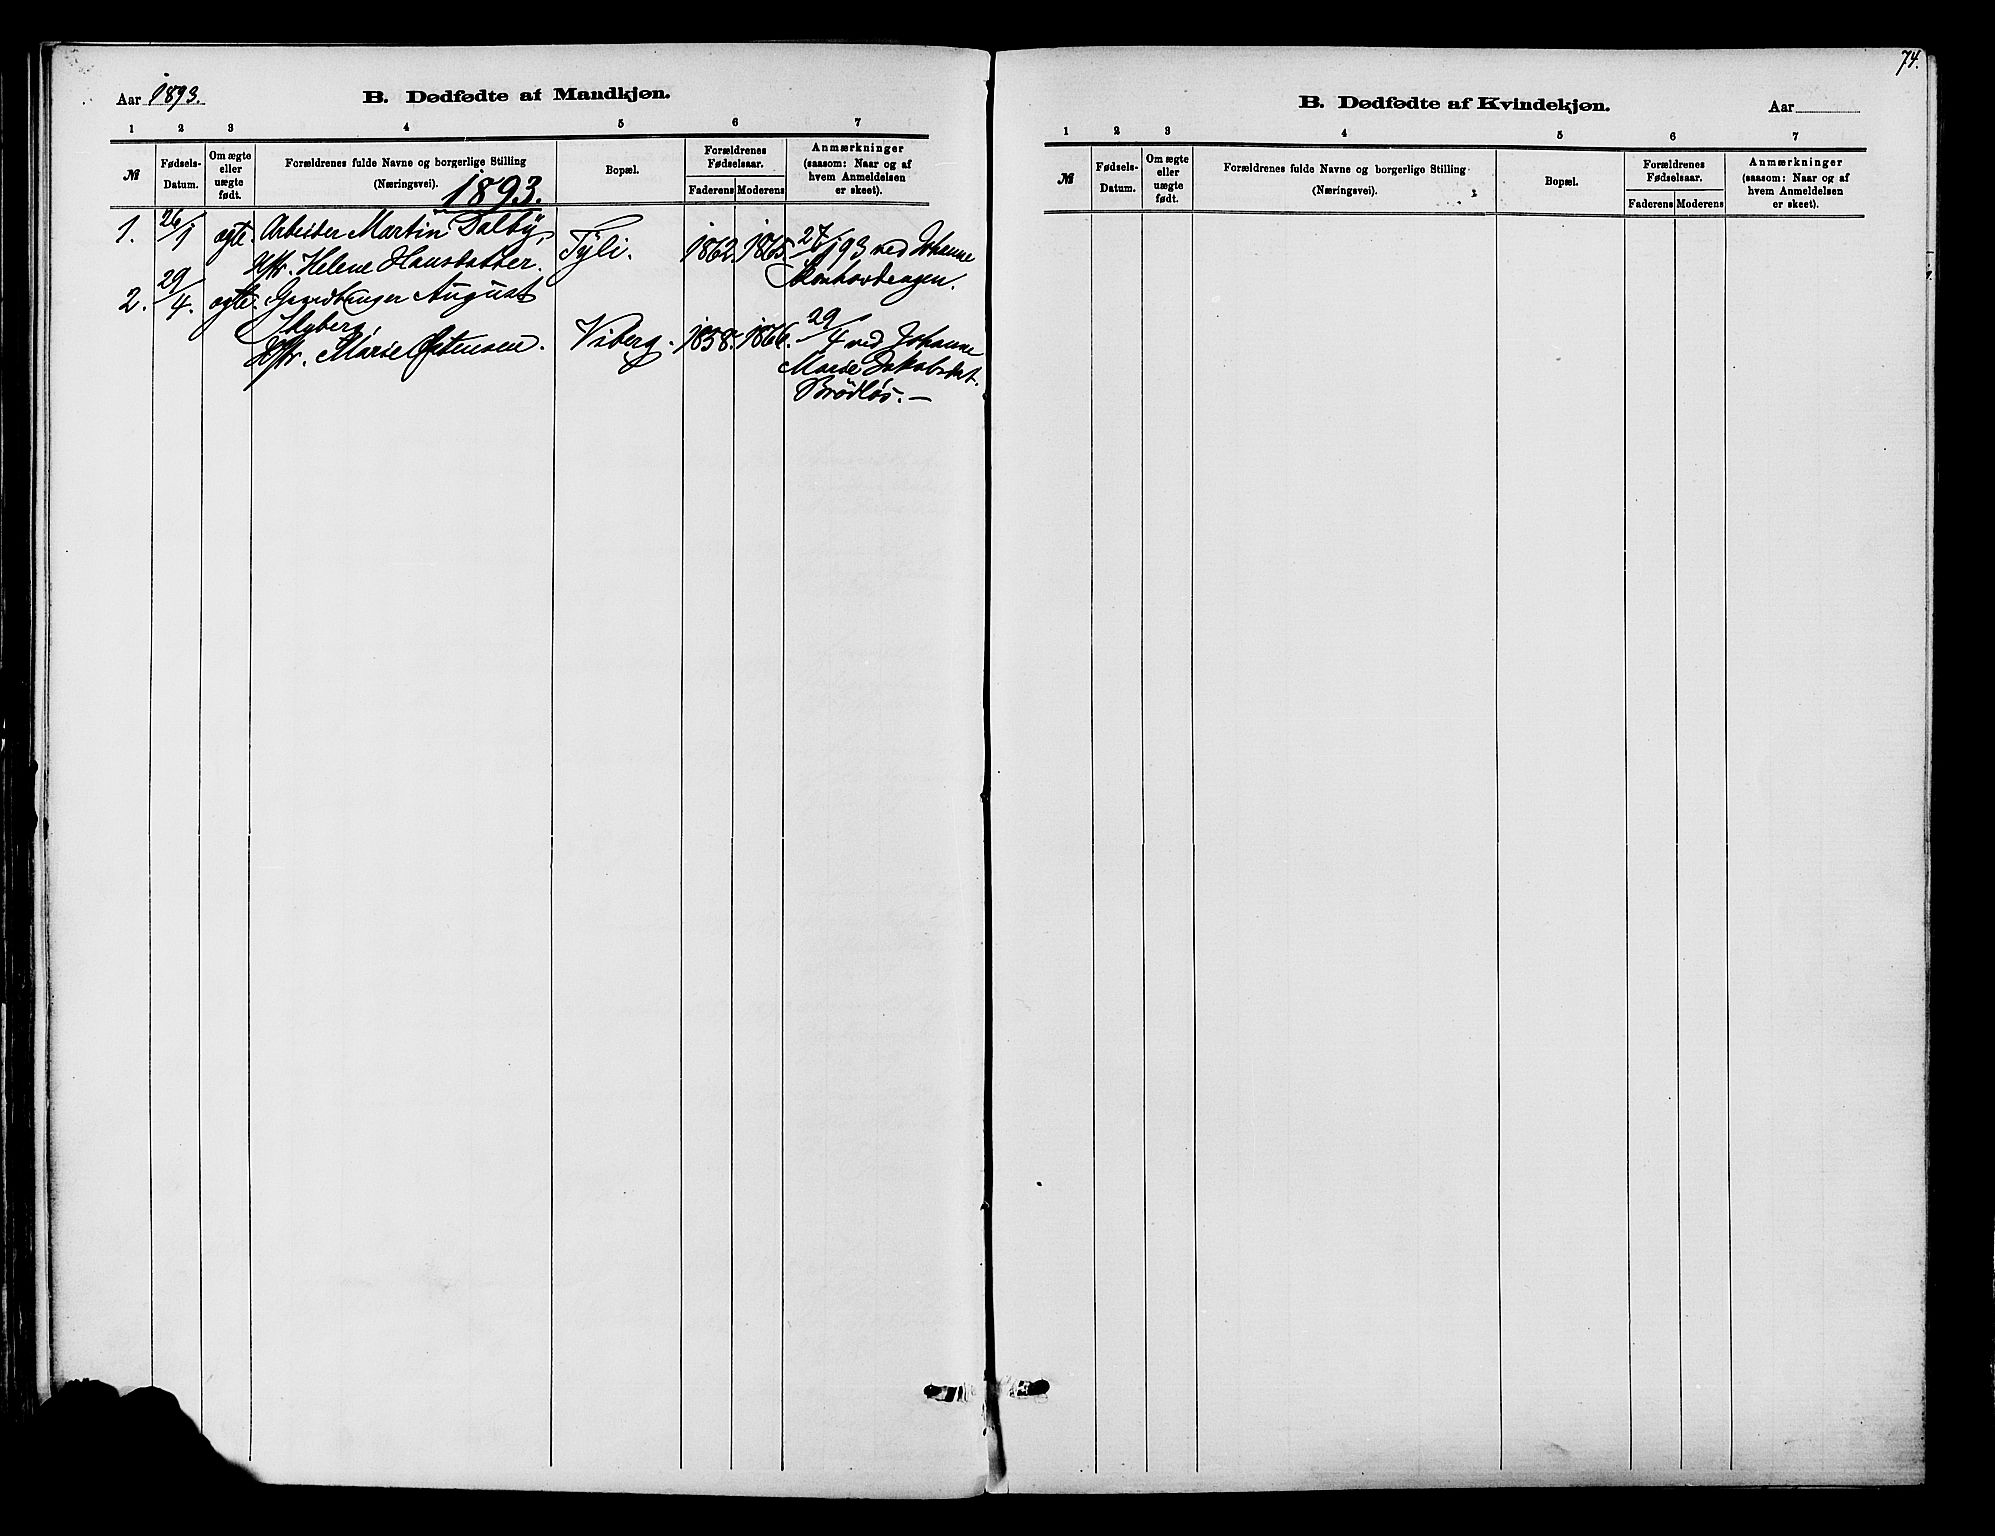 Aar 1893.
B. Dødfødte af Mandkjøn.
1 2 3 4 5 6 7
№
Fødsels-
Datum.
Om ægte
eller
uægte
født.
Forældrenes fulde Navne og borgerlige Stilling
(Næringsvei).
Bopæl.
Forældrenes
Fødselsaar.
Faderens Moderens
Anmærkninger
(saasom: Naar og af
hvem Anmeldelsen
er skeet).
1893.
1. 26/1 ægte. Arbeider Martin Dalby, Tyli. 1862. 1865. 27/1 93 ved Johanne
Hstr. Helene Hansdatter.
2. 29/4. ægte. August
Viberg. 1858. 1866. 29/4 ved Johanne
Hstr. Marie
Marie Jakobsdat.
Brödlös. —
74.
B. Dødfødte af Kvindekjøn.
Aar
1 2 3 4 5 6 7
№
Fødsels-
Datum.
Om ægte
eller
uægte
født.
Forældrenes fulde Navne og borgerlige Stilling
(Næringsvei).
Bopæl.
Forældrenes
Fødselsaar.
Faderens Moderens
Anmærkninger
(saasom: Naar og af
hvem Anmeldelsen
er skeet).